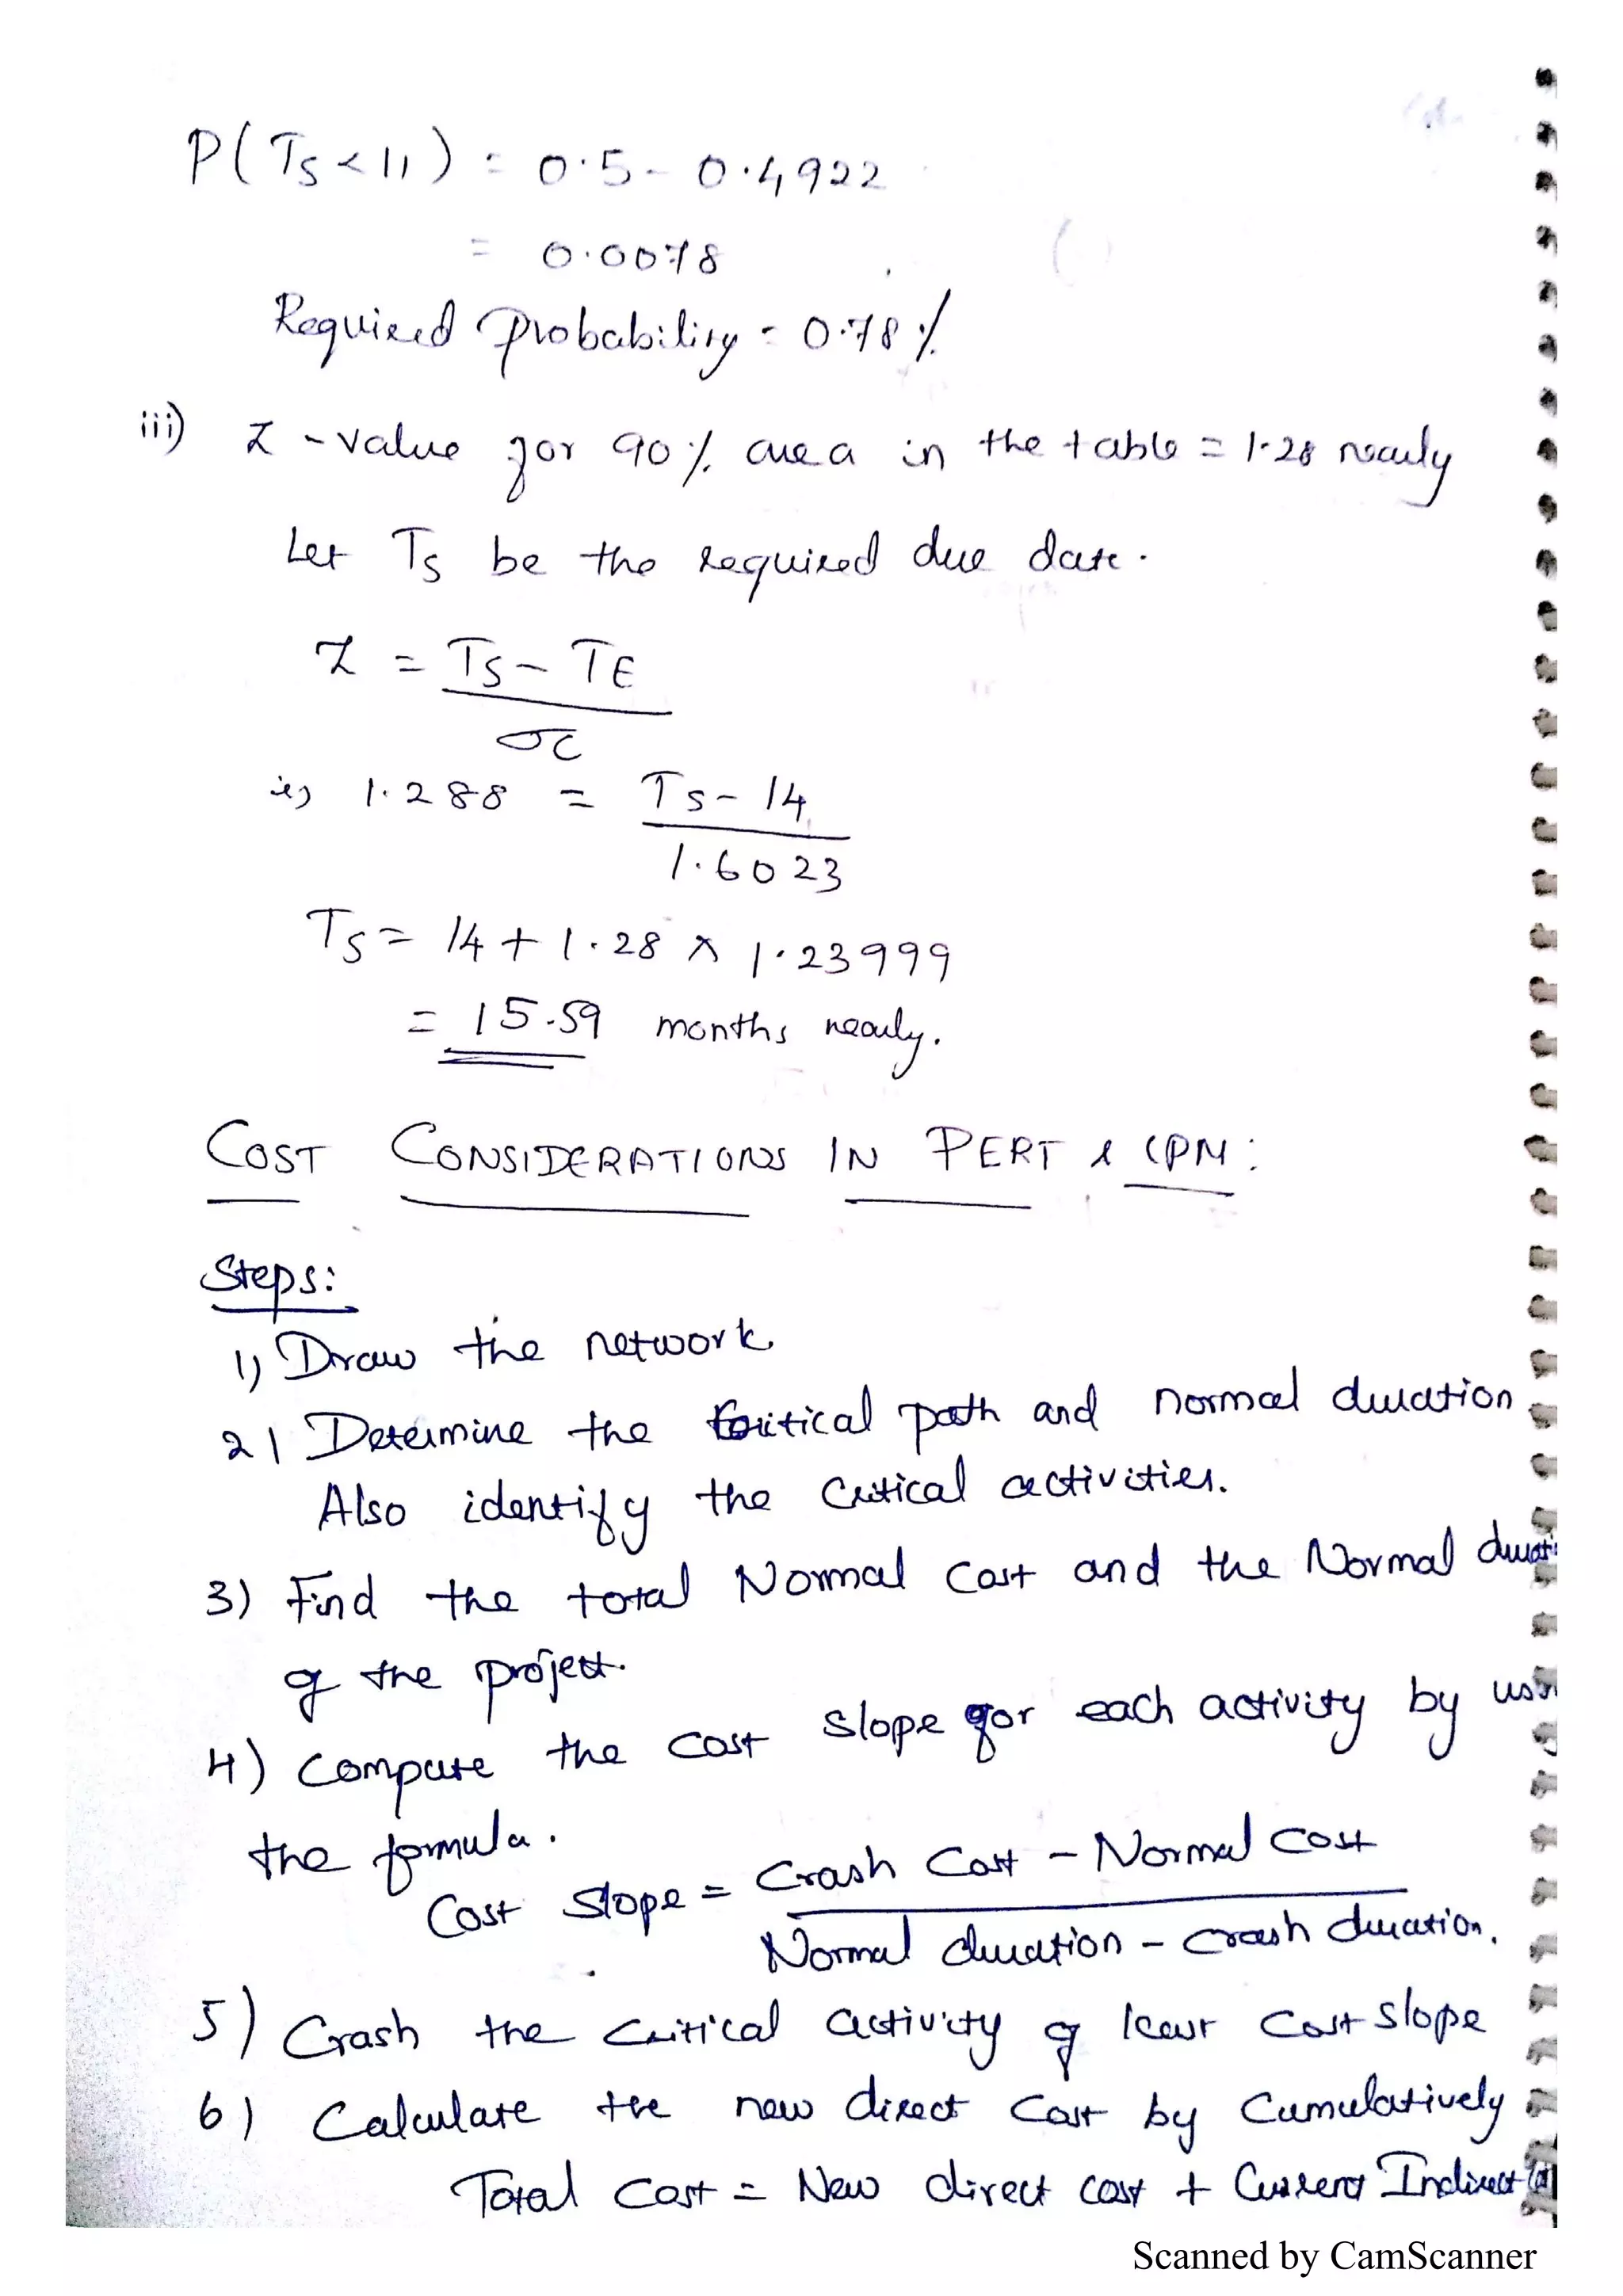 P(Ts < 11) = 0.5 - 0.4922
= 0.0078
Required Probability = 0.78 %
iii) Z - value for 90 % area in the table = 1.28 nearly
Let Ts be the required due date.
Z = Ts - TE
σc
ie, 1.288 = Ts - 14
1.6023
Ts = 14 + 1.28 × 1.23999
= 15.59 months nearly.
COST CONSIDERATIONS IN PERT & CPM:
Steps:
1) Draw the network
2) Determine the critical path and normal duration
Also identify the critical activities.
3) Find the total Normal cost and the Normal
of the project.
4) Compute the cost slope for each activity by
the formula.
Cost Slope = Crash Cost - Normal Cost
Normal duration - crash duration.
5) Crash the critical activity of least cost slope
6) Calculate the new direct cost by cumulatively
Total cost = New direct cost + Current Indirect
Scanned by CamScanner